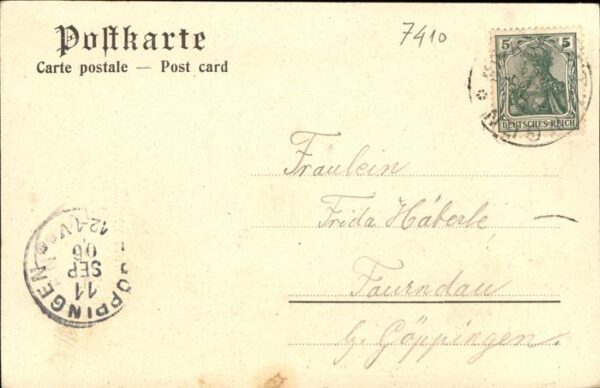 Postkarte
Carte postale — Post card
7410
5 5
DEUTSCHES REICH
Fräulein
Frida Häberle
Faurndau
b/ Göppingen.
GÖPPINGEN
11
SEP
06
12-1V